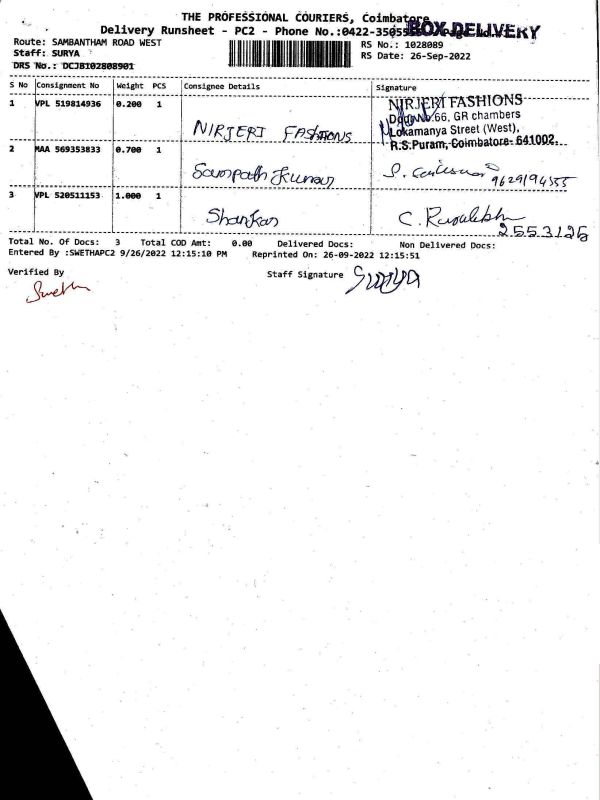 THE PROFESSIONAL COURIERS, Coimbatore
BOX DELIVERY
Delivery Runsheet - PC2 - Phone No.:0422-35055
Route: SAMBANTHAM ROAD WEST
RS No.: 1028089
Staff: SURYA
RS Date: 26-Sep-2022
DRS No.: DCJB102808901
S No Consignment No Weight PCS Consignee Details Signature
1 VPL 519814936 0.200 1 NIRJERI FASHIONS
NIRJERI FASHIONS
Door No.66, GR chambers
Lokamanya Street (West),
R.S.Puram, Coimbatore- 641002.
2 MAA 569353833 0.700 1 Sampath Kumar
3 VPL 520511153 1.000 1 Shankar
2553126
Total No. Of Docs: 3 Total COD Amt: 0.00 Delivered Docs: Non Delivered Docs:
Entered By :SWETHAPC2 9/26/2022 12:15:10 PM Reprinted On: 26-09-2022 12:15:51
Verified By Staff Signature Surya
Swetha